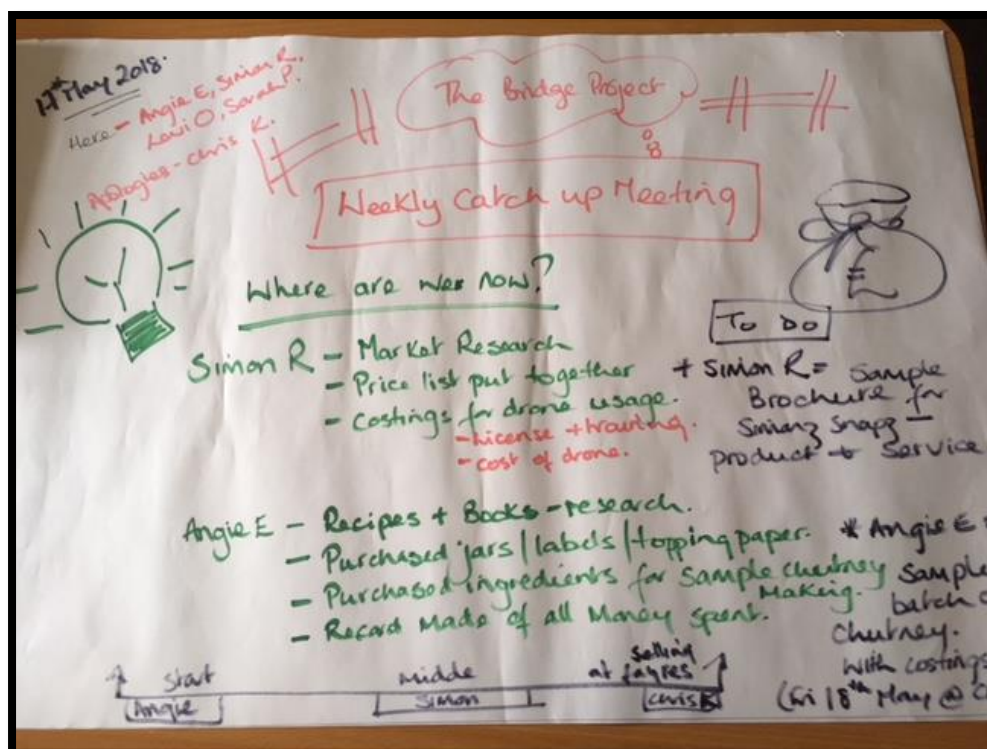 17th May 2018.
Here - Angie E, Simon R,
Levi O, Sarah P.
Apologies - Chris K.
The Bridge Project
Weekly Catch up Meeting
£
Where are wer now?
Simon R - Market Research
- Price list put together
- Costings for drone usage.
- License + training.
- cost of drone.
To Do
+ Simon R = Sample
Brochure for
Snapz -
product + Service
Angie E - Recipes + Books - research.
- Purchased jars / labels / topping paper.
- Purchased ingredients for sample chutney
making.
- Record Made of all Money spent.
* Angie E
Sample
batch
chutney.
with costings
(Fri 18th May @
Start
Middle
selling
at fayres
Angie
Simon
Chris K